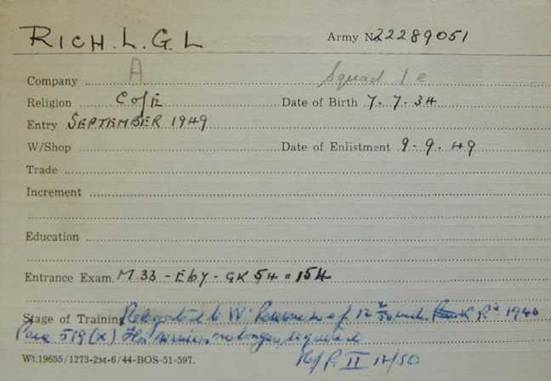 RICH. L. G. L Army No 22289051
Company A Squad 1 e
Religion C of E Date of Birth 7. 7. 34
Entry SEPTEMBER 1949
W/Shop Date of Enlistment 9-9-49
Trade
Increment
Education
Entrance Exam. M 33 - E 67 - GK 54 = 154
Stage of Training to W Reserve w.e.f. 12 under 1940
Para 519 (x) His services no longer required
II 12/50
Wt.19655/1273-2M-6/44-BOS-51-597.